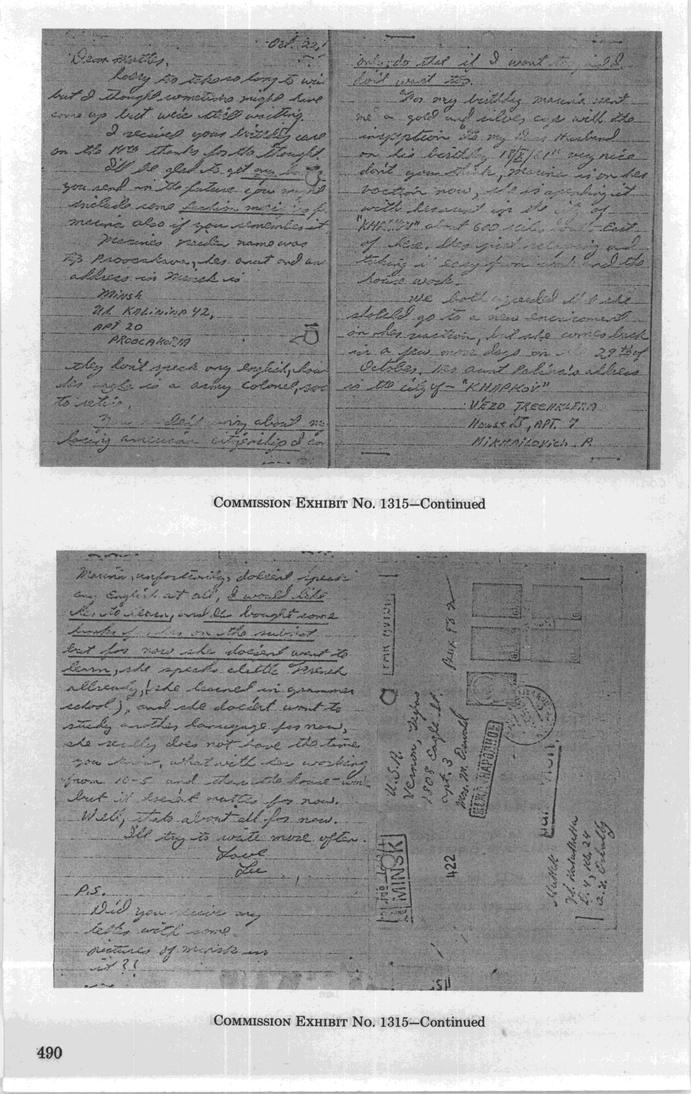 Oct. 22,
Dear Mother,
Sorry to take so long to
but I thought sometime might have
come up but we're still waiting.
I recived your birthday
on the 14th thanks for the thought.
I'll be glad to get any
you send in the future, you might
include some fashion
marina also if you remember it
Marina's maiden name was
her aunt and
address in Minsk is
MINSK
UL. KALININA 42,
APT 20
they don't speak any english,
her uncle is a army colonel,
to retire.
worry about
losing american citizenship I
only do that if I want to, and I
don't want to.
For my birthday marina sent
me a gold and silver cup with the
inscription "to my Dear Husband
on his birthday 18/X/61" very nice
don't you think, Marina is on her
vaction now, she is spending it
with her aunt in the city of
about 600 miles South East
of here. She's just relaxing and
taking it easy from work and the
house work.
we both agreeded that she
should go to a new enviroment
on her vaction, but she comes back
in a few more days on 29th of
October. Her aunt address
in the city of - "KHARKOV"
APT. 7
MIKHAILOVICH
COMMISSION EXHIBIT No. 1315—Continued
Marina, unfortunitly, doesent speak
any English at all, I would like
her to learn, and I've bought some
books for her on the subject
but for now she doesent want to
learn, she speaks a little French
allready, (she learned in grammer
school), and she doesent want to
study another language for now,
she really does not have the time
you know, what with her working
from 10-5 and then the house-work
but it doesnt matter for now.
Well, thats about all for now.
I'll try to write more often.
Love
Lee
P.S.
Did you recive my
letter with some
pictures of minsk in
it?!
PAR AVION
U.S.A.
Vernon, Texas
1808 Eagle St.
apt. 3
Mrs. M. Oswald
MINSK
422
COMMISSION EXHIBIT No. 1315—Continued
490